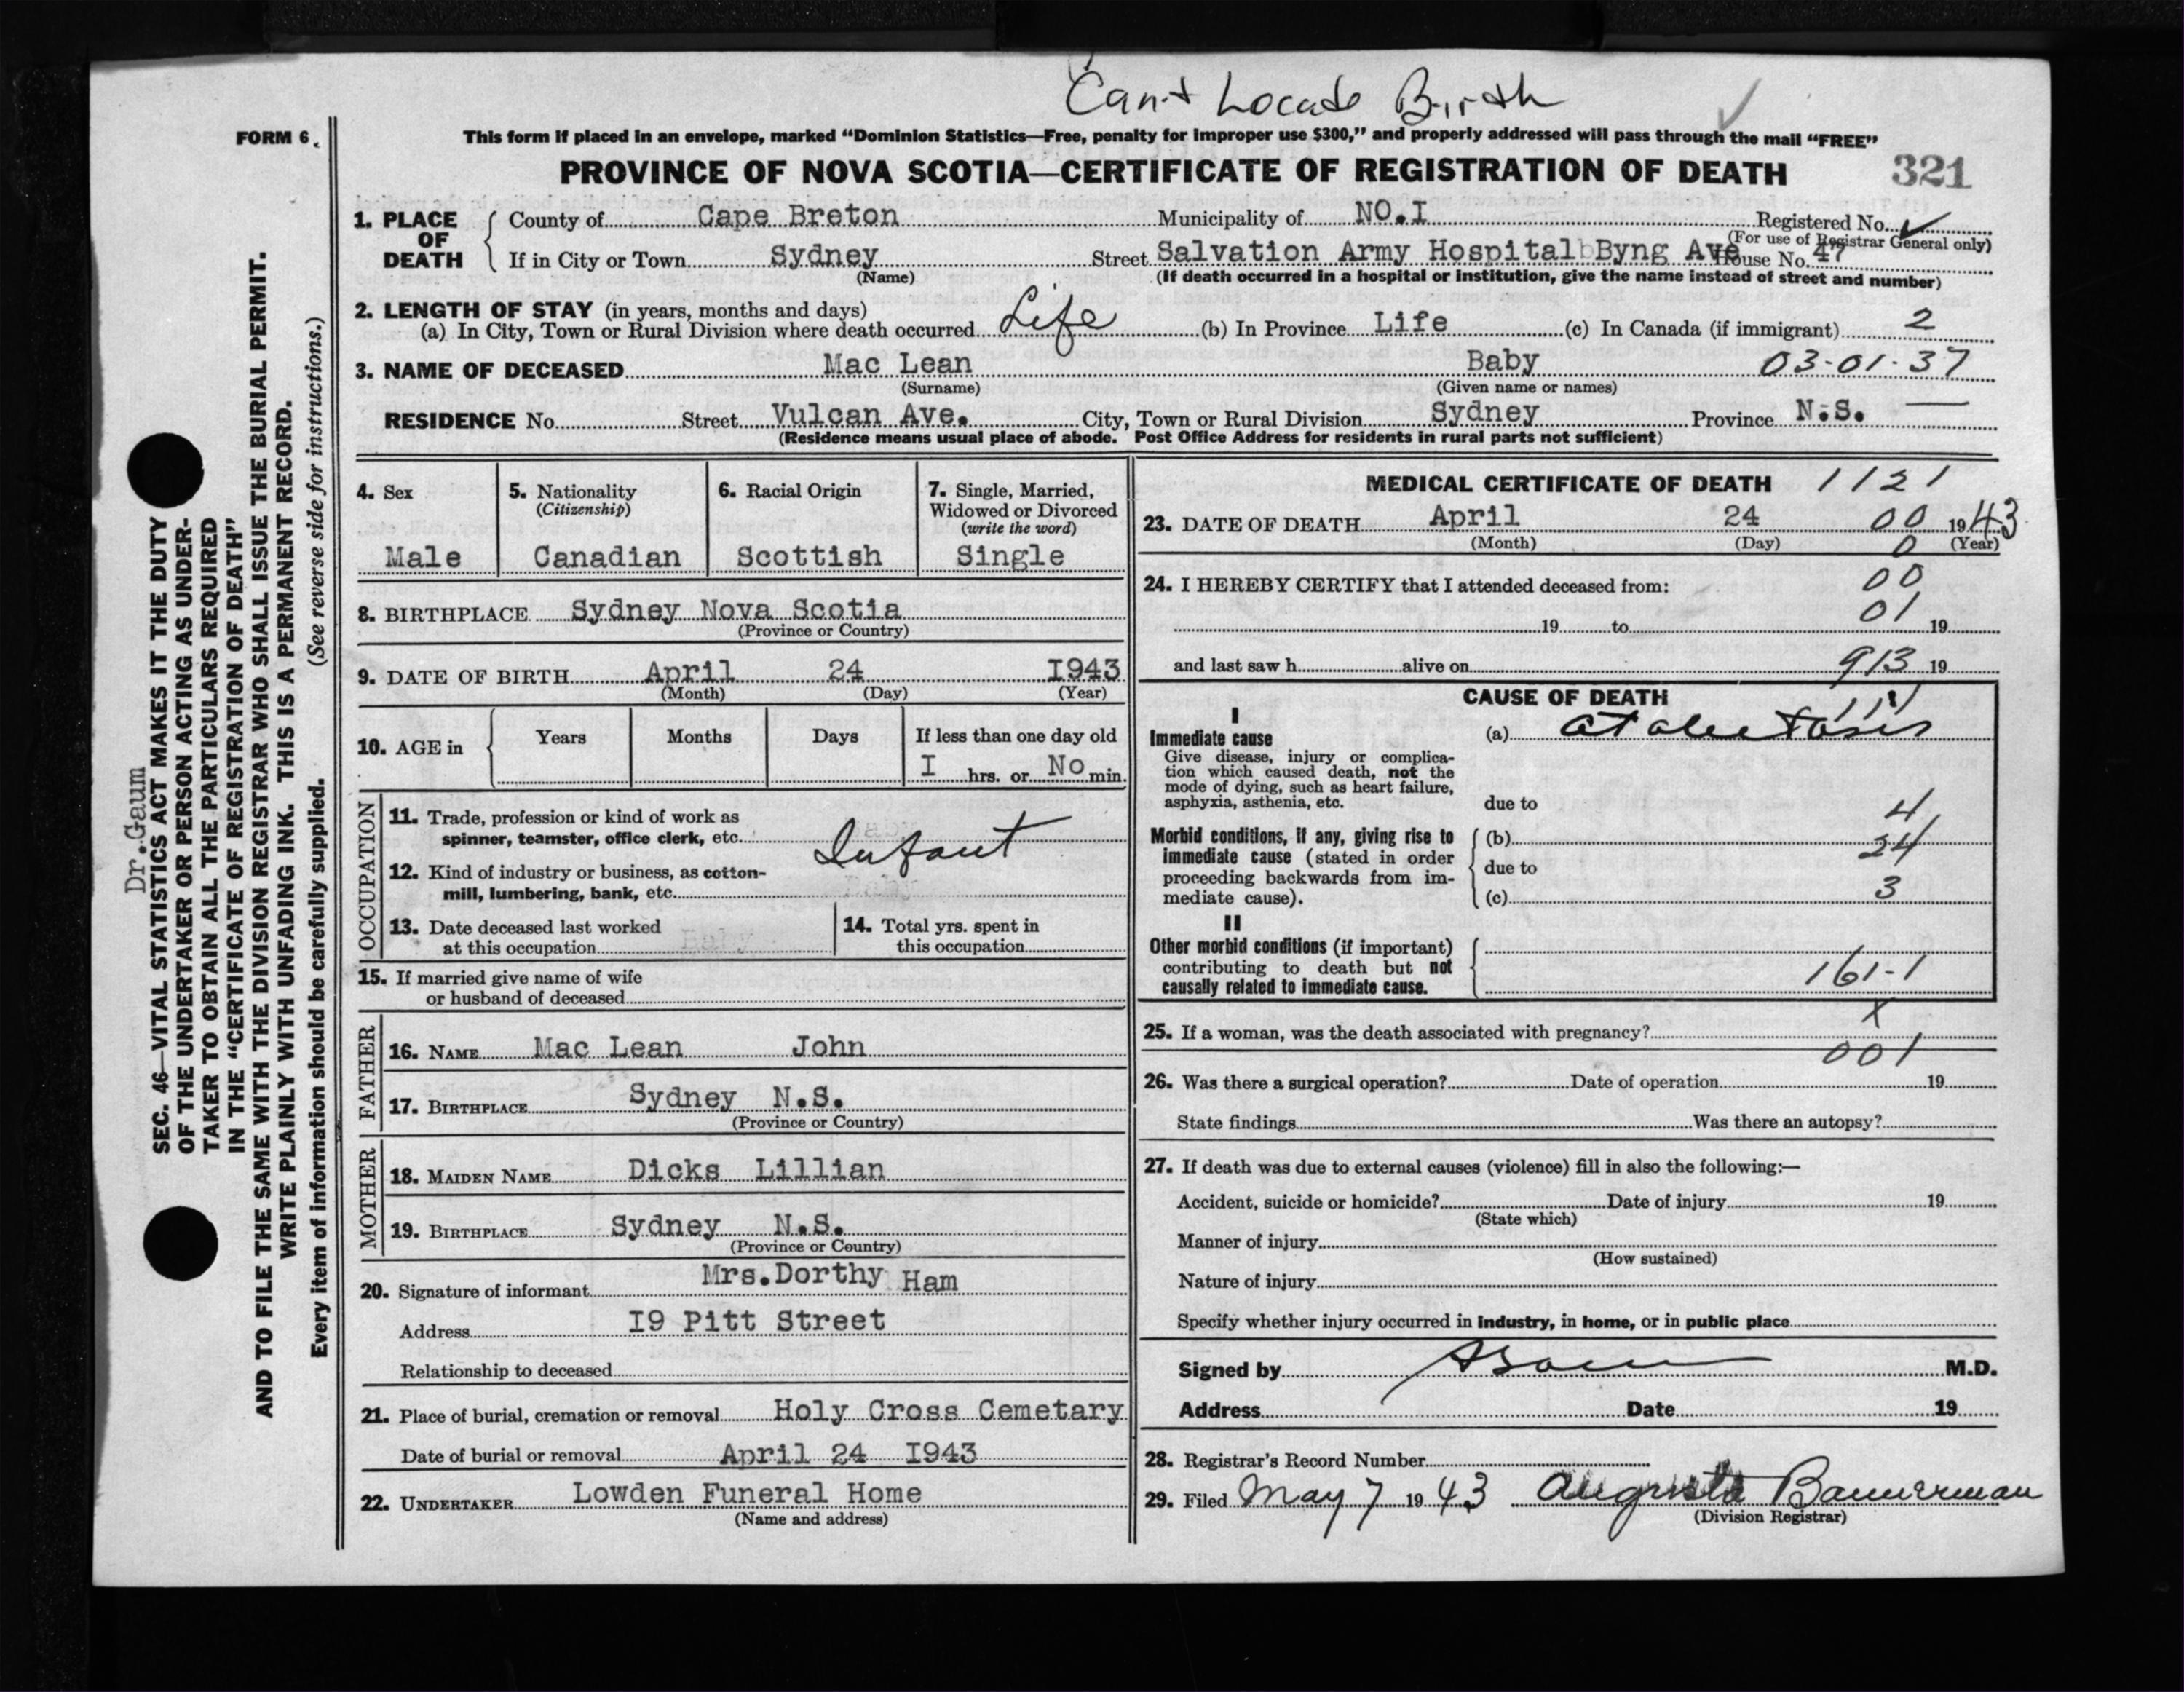 Can't Locate Birth
FORM 6.
This form if placed in an envelope, marked “Dominion Statistics—Free, penalty for improper use $300,” and properly addressed will pass through the mail “FREE”
PROVINCE OF NOVA SCOTIA—CERTIFICATE OF REGISTRATION OF DEATH 321
1. PLACE OF DEATH
County of Cape Breton Municipality of NO.I Registered No. ✓
(For use of Registrar General only)
If in City or Town Sydney Street Salvation Army Hospital Byng Ave House No. 47
(Name) (If death occurred in a hospital or institution, give the name instead of street and number)
2. LENGTH OF STAY (in years, months and days)
(a) In City, Town or Rural Division where death occurred Life (b) In Province Life (c) In Canada (if immigrant) 2
3. NAME OF DECEASED Mac Lean Baby 03-01-37
(Surname) (Given name or names)
RESIDENCE No. Street Vulcan Ave. City, Town or Rural Division Sydney Province N.S. —
(Residence means usual place of abode. Post Office Address for residents in rural parts not sufficient)
4. Sex
Male
5. Nationality
(Citizenship)
Canadian
6. Racial Origin
Scottish
7. Single, Married,
Widowed or Divorced
(write the word)
Single
8. BIRTHPLACE Sydney Nova Scotia
(Province or Country)
9. DATE OF BIRTH April 24 I943
(Month) (Day) (Year)
10. AGE in Years Months Days If less than one day old
I hrs. or No min.
OCCUPATION
11. Trade, profession or kind of work as
spinner, teamster, office clerk, etc. Infant
12. Kind of industry or business, as cotton-
mill, lumbering, bank, etc.
13. Date deceased last worked
at this occupation
14. Total yrs. spent in
this occupation
15. If married give name of wife
or husband of deceased
FATHER
16. NAME Mac Lean John
17. BIRTHPLACE Sydney N.S.
(Province or Country)
MOTHER
18. MAIDEN NAME Dicks Lillian
19. BIRTHPLACE Sydney N.S.
(Province or Country)
20. Signature of informant Mrs.Dorthy Ham
Address I9 Pitt Street
Relationship to deceased
21. Place of burial, cremation or removal Holy Cross Cemetary
Date of burial or removal April 24 I943
22. UNDERTAKER Lowden Funeral Home
(Name and address)
MEDICAL CERTIFICATE OF DEATH 1121
23. DATE OF DEATH April 24 00 1943
(Month) (Day) 0 (Year)
24. I HEREBY CERTIFY that I attended deceased from: 00
01
19 to 19
and last saw h alive on 913 19
CAUSE OF DEATH
I
Immediate cause
Give disease, injury or complica-
tion which caused death, not the
mode of dying, such as heart failure,
asphyxia, asthenia, etc.
(a) atelectasis
due to 4
Morbid conditions, if any, giving rise to
immediate cause (stated in order
proceeding backwards from im-
mediate cause).
(b) 24
due to
(c) 3
II
Other morbid conditions (if important)
contributing to death but not
causally related to immediate cause.
161-1
25. If a woman, was the death associated with pregnancy? X
001
26. Was there a surgical operation? Date of operation 19
State findings Was there an autopsy?
27. If death was due to external causes (violence) fill in also the following:—
Accident, suicide or homicide? Date of injury 19
(State which)
Manner of injury
(How sustained)
Nature of injury
Specify whether injury occurred in industry, in home, or in public place
Signed by M.D.
Address Date 19
28. Registrar's Record Number
29. Filed May 7 1943 Augusta Bannerman
(Division Registrar)
Dr.Gaum
SEC. 46—VITAL STATISTICS ACT MAKES IT THE DUTY
OF THE UNDERTAKER OR PERSON ACTING AS UNDER-
TAKER TO OBTAIN ALL THE PARTICULARS REQUIRED
IN THE “CERTIFICATE OF REGISTRATION OF DEATH”
AND TO FILE THE SAME WITH THE DIVISION REGISTRAR WHO SHALL ISSUE THE BURIAL PERMIT.
WRITE PLAINLY WITH UNFADING INK. THIS IS A PERMANENT RECORD.
Every item of information should be carefully supplied. (See reverse side for instructions.)